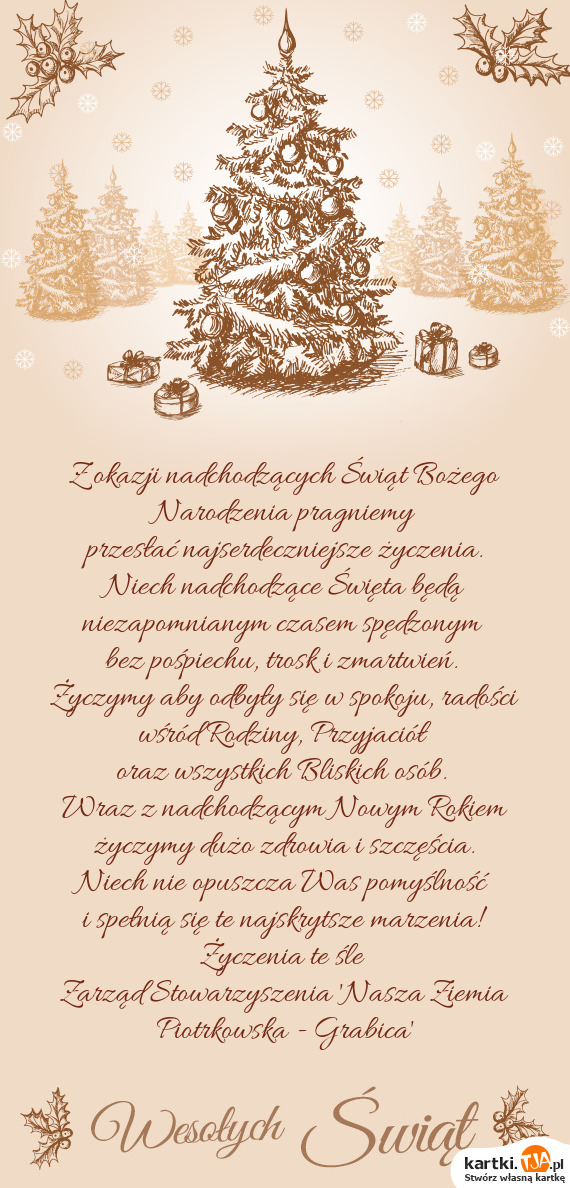 Z okazji nadchodzących Świąt Bożego
Narodzenia pragniemy
przesłać najserdeczniejsze życzenia.
Niech nadchodzące Święta będą
niezapomnianym czasem spędzonym
bez pośpiechu, trosk i zmartwień.
Życzymy aby odbyły się w spokoju, radości
wśród Rodziny, Przyjaciół
oraz wszystkich Bliskich osób.
Wraz z nadchodzącym Nowym Rokiem
życzymy dużo zdrowia i szczęścia.
Niech nie opuszcza Was pomyślność
i spełnią się te najskrytsze marzenia!
Życzenia te śle
Zarząd Stowarzyszenia 'Nasza Ziemia
Piotrkowska - Grabica'
Wesołych Świąt
kartki.TJA.pl
Stwórz własną kartkę